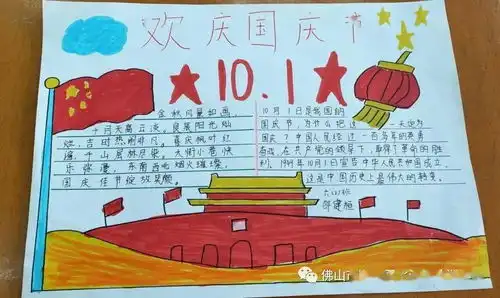 欢庆国庆节
10.1
金秋风景如画
十月天高云淡，良辰阳光灿
烂，吉时热潮非凡。喜庆枫叶红
满，千山层林尽染。大街小巷快
乐徐漾，东南西北烟火璀璨，
国庆佳节绽放笑颜。
10月1日是我国的
国庆节，为什么把这一天也为
国庆？中国人民经过一百多年的英勇
奋战，在共产党的领导下，取得了革命的胜
利，1949年10月1日宣告中华人民共和国成立，
这是中国历史上最伟大的转变。
六(2)班
邹建恒
佛山